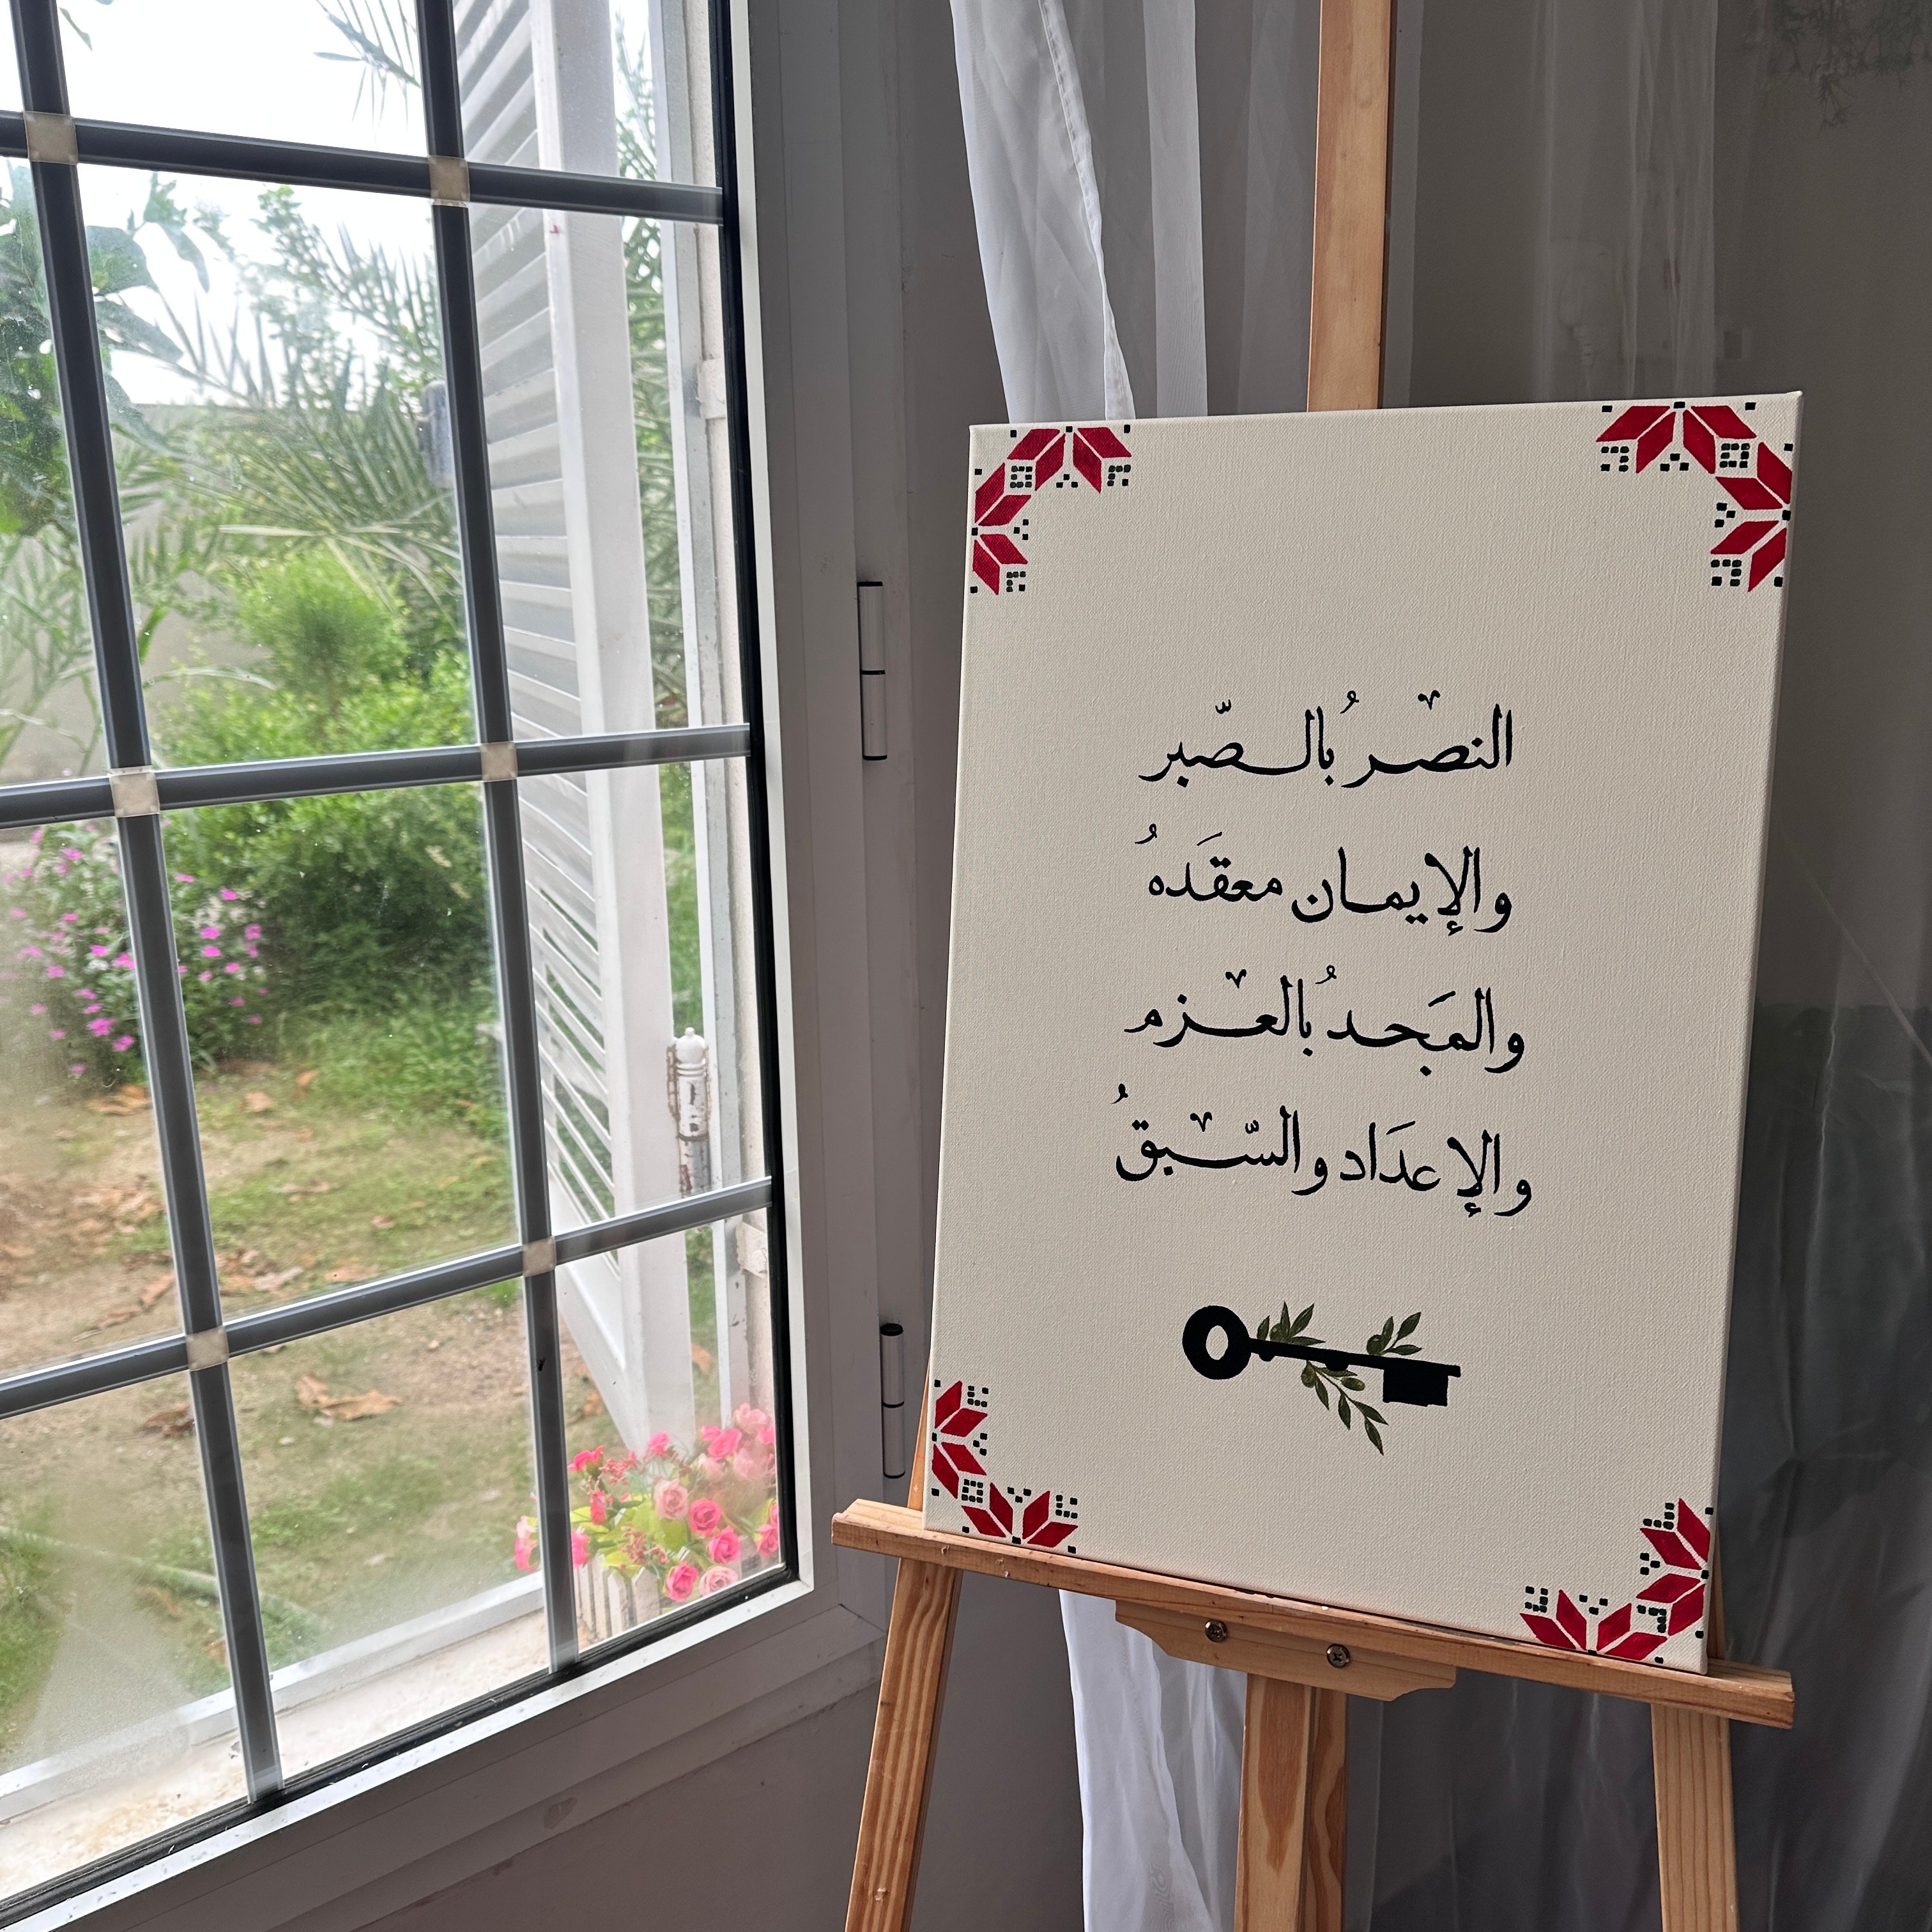 النصرُ بالصّبر
والإيمان معقَدهُ
والمَجدُ بالعزم
والإعدَاد والسّبقُ